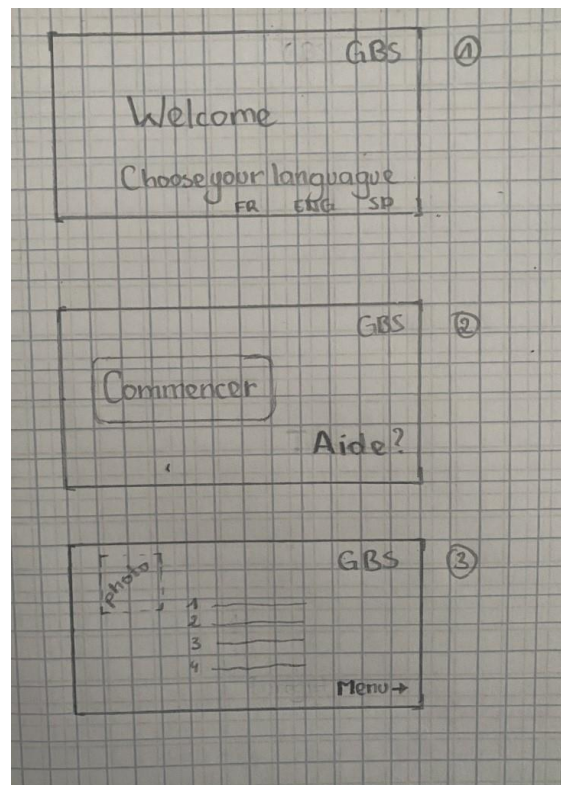 GBS ①
Welcome
Choose your languague
FR ENG SP
GBS ②
Commencer
Aide?
GBS ③
photo
1
2
3
4
Menu→